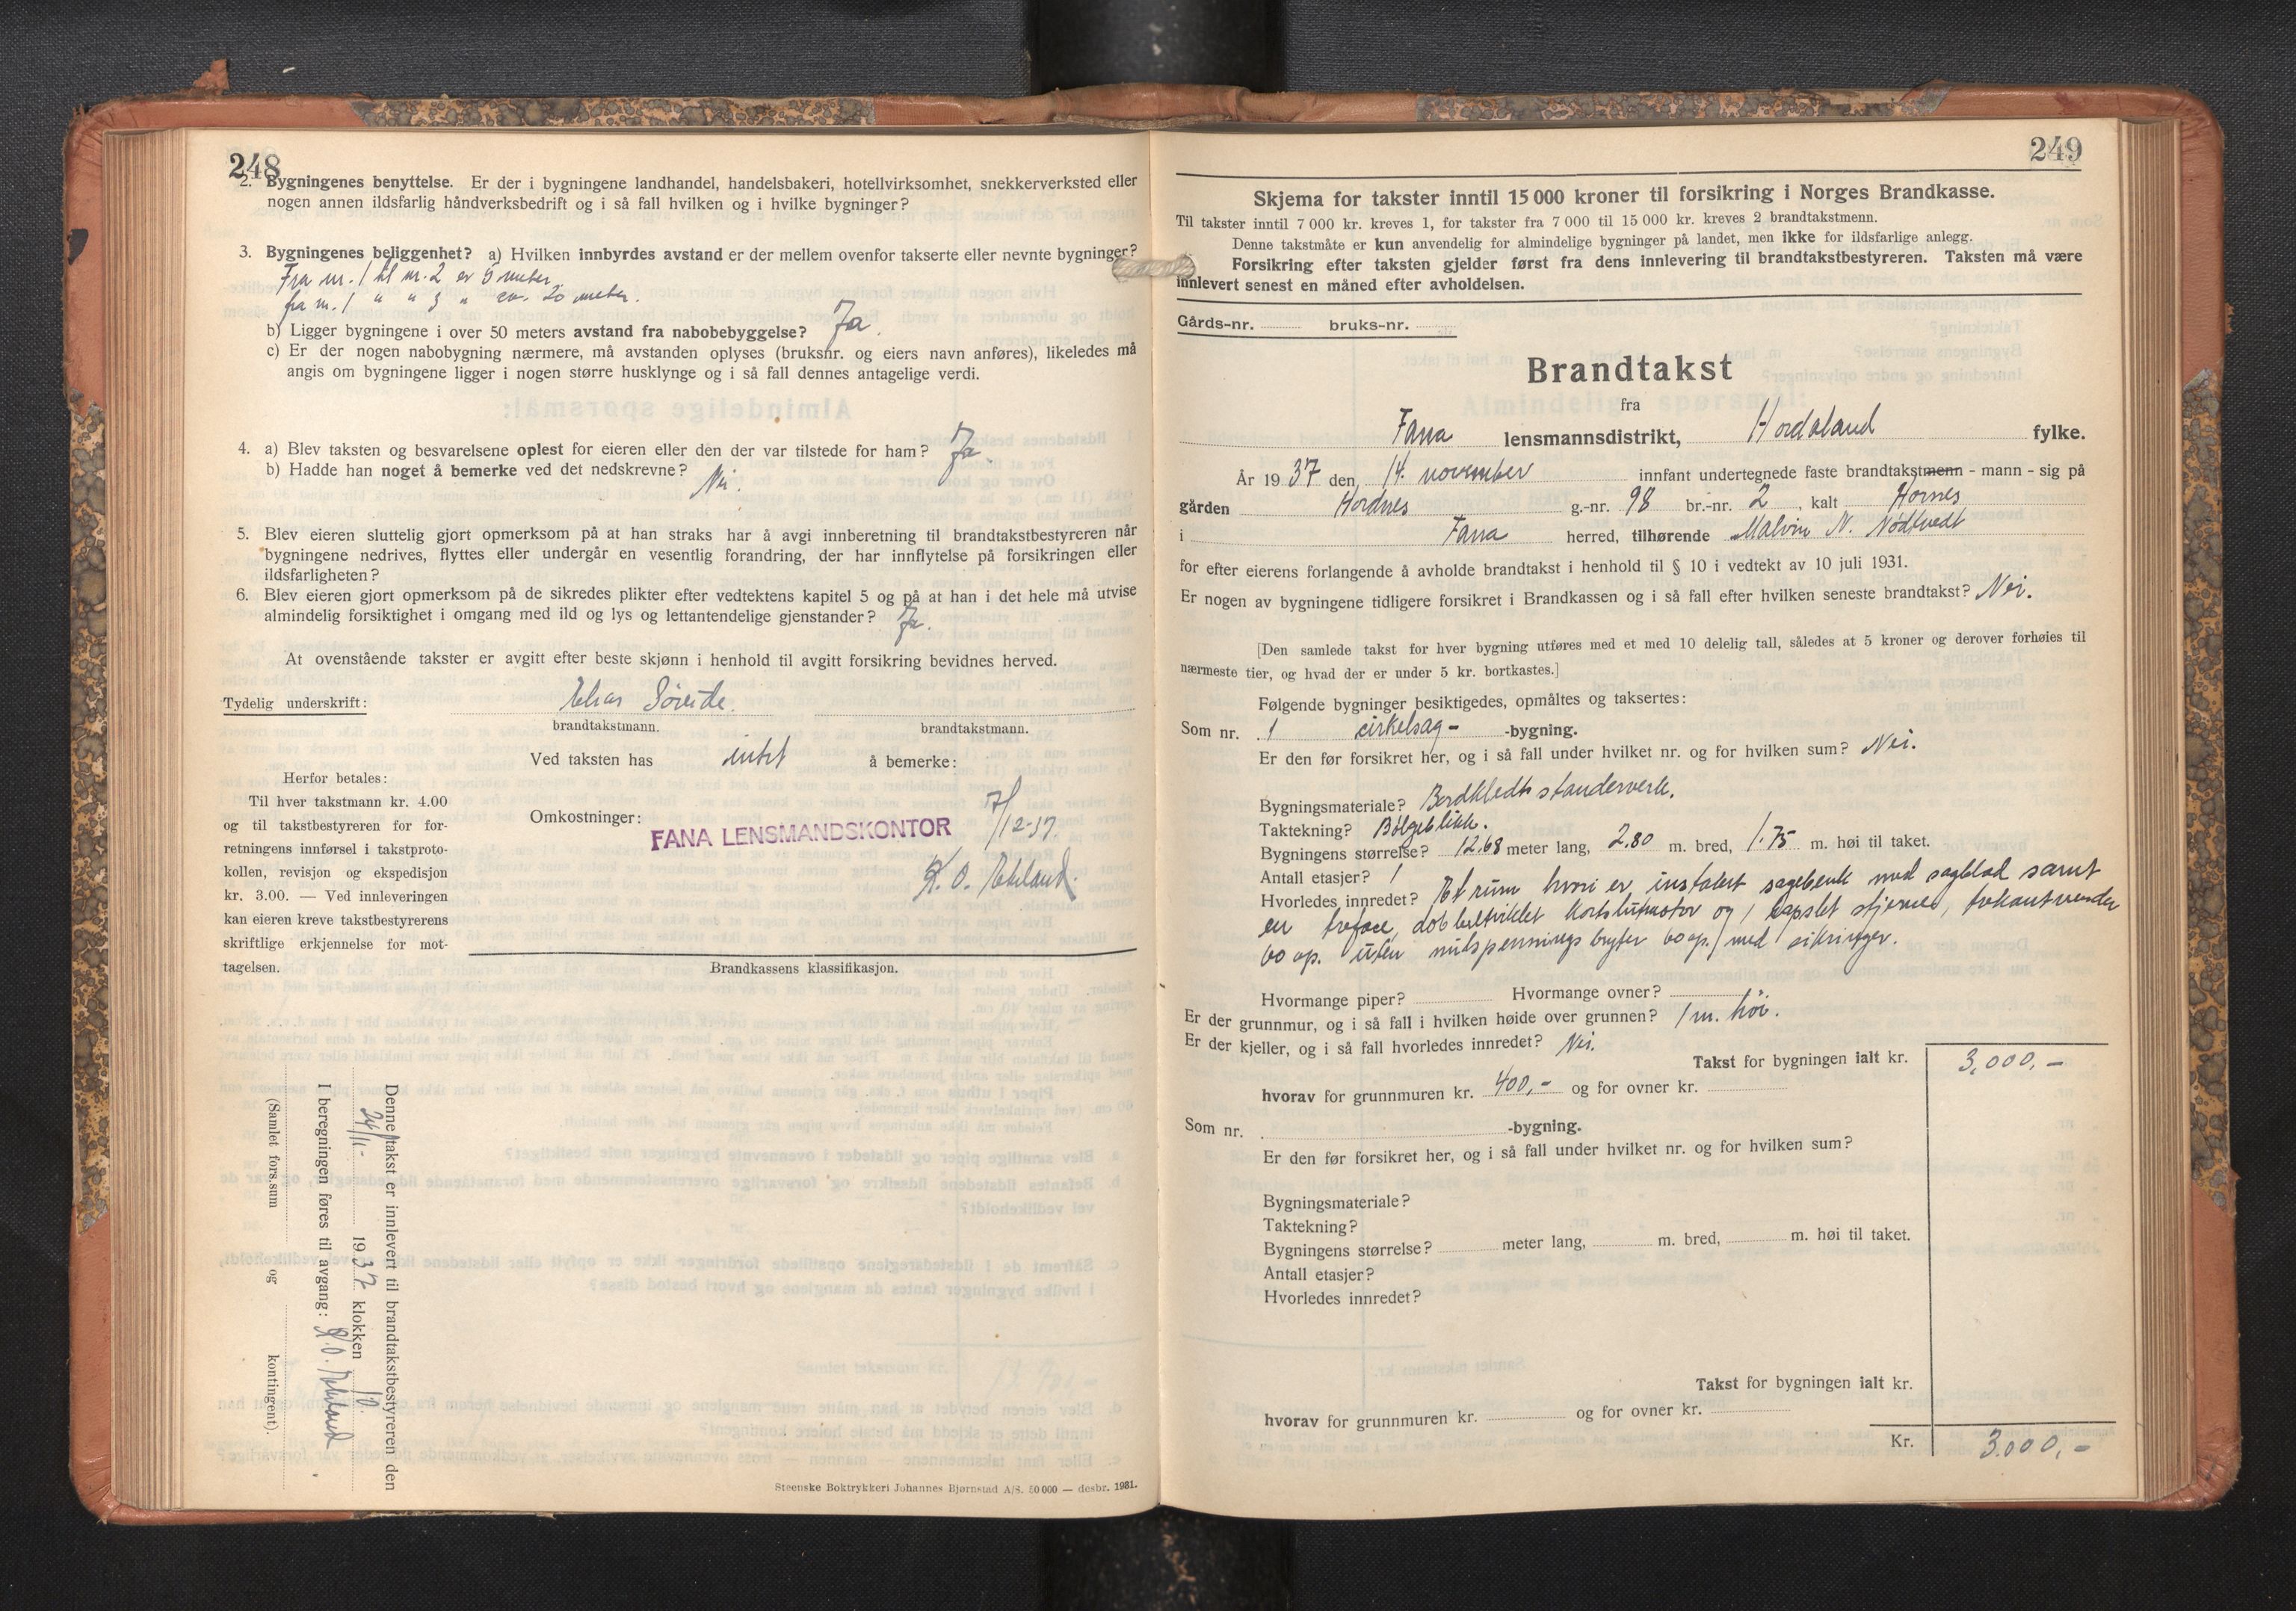 248
2. Bygningenes benyttelse. Er der i bygningene landhandel, handelsbakeri, hotellvirksomhet, snekkerverksted eller
nogen annen ildsfarlig håndverksbedrift og i så fall hvilken og i hvilke bygninger?
3. Bygningenes beliggenhet? a) Hvilken innbyrdes avstand er der mellem ovenfor takserte eller nevnte bygninger?
Fra nr. 1 til nr. 2 er 5 meter
fra nr. 1 " " 3 " ca. 20 meter.
b) Ligger bygningene i over 50 meters avstand fra nabobebyggelse? Ja.
c) Er der nogen nabobygning nærmere, må avstanden oplyses (bruksnr. og eiers navn anføres), likeledes må
angis om bygningene ligger i nogen større husklynge og i så fall dennes antagelige verdi.
4. a) Blev taksten og besvarelsene oplest for eieren eller den der var tilstede for ham? Ja.
b) Hadde han noget å bemerke ved det nedskrevne? Nei.
5. Blev eieren sluttelig gjort opmerksom på at han straks har å avgi innberetning til brandtakstbestyreren når
bygningene nedrives, flyttes eller undergår en vesentlig forandring, der har innflytelse på forsikringen eller
ildsfarligheten?
6. Blev eieren gjort opmerksom på de sikredes plikter efter vedtektens kapitel 5 og på at han i det hele må utvise
almindelig forsiktighet i omgang med ild og lys og lettantendelige gjenstander? Ja.
At ovenstående takster er avgitt efter beste skjønn i henhold til avgitt forsikring bevidnes herved.
Tydelig underskrift: Elias Søreide.
brandtakstmann. brandtakstmann.
Ved taksten has intet å bemerke:
Herfor betales:
Til hver takstmann kr. 4.00
og til takstbestyreren for for-
retningens innførsel i takstproto-
kollen, revisjon og ekspedisjon
kr. 3.00. — Ved innleveringen
kan eieren kreve takstbestyrerens
skriftlige erkjennelse for mot-
tagelsen.
Omkostninger:
FANA LENSMANDSKONTOR 7/12-37.
Brandkassens klassifikasjon.
Denne takst er innlevert til brandtakstbestyreren den
24/11- 1937 klokken 10.
I beregningen føres til avgang:
(Samlet fors.sum og kontingent).
Steenske Boktrykkeri Johannes Bjørnstad A/S. 50 000 — desbr. 1931.
249
Skjema for takster inntil 15 000 kroner til forsikring i Norges Brandkasse.
Til takster inntil 7 000 kr. kreves 1, for takster fra 7 000 til 15 000 kr. kreves 2 brandtakstmenn.
Denne takstmåte er kun anvendelig for almindelige bygninger på landet, men ikke for ildsfarlige anlegg.
Forsikring efter taksten gjelder først fra dens innlevering til brandtakstbestyreren. Taksten må være
innlevert senest en måned efter avholdelsen.
Gårds-nr. bruks-nr.
Brandtakst
fra
Fana lensmannsdistrikt, Hordaland fylke.
År 1937 den, 14. november innfant undertegnede faste brandtakstmenn - mann - sig på
gården Hordnes g.-nr. 98 br.-nr. 2, kalt Hornes
i Fana herred, tilhørende Malvin N. Nødtvedt
for efter eierens forlangende å avholde brandtakst i henhold til § 10 i vedtekt av 10 juli 1931.
Er nogen av bygningene tidligere forsikret i Brandkassen og i så fall efter hvilken seneste brandtakst? Nei.
[Den samlede takst for hver bygning utføres med et med 10 delelig tall, således at 5 kroner og derover forhøies til
nærmeste tier, og hvad der er under 5 kr. bortkastes.]
Følgende bygninger besiktigedes, opmåltes og taksertes:
Som nr. 1 cirkelsag- -bygning.
Er den før forsikret her, og i så fall under hvilket nr. og for hvilken sum? Nei.
Bygningsmateriale? Bordkledt standerverk.
Taktekning? Bølgeblikk.
Bygningens størrelse? 12.68 meter lang, 2.80 m. bred, 1.75 m. høi til taket.
Antall etasjer? 1
Hvorledes innredet? Et rum hvori er instalert sagebenk med sagblad samt
en trefase, dobbeltviklet kortslutmotor og 1 kapslet stjerne, trekantvender
60 ap. uten nulspennings bryter 60 ap. med sikringer.
Hvormange piper? Hvormange ovner?
Er der grunnmur, og i så fall i hvilken høide over grunnen? 1 m. høi.
Er der kjeller, og i så fall hvorledes innredet? Nei.
Takst for bygningen ialt kr. 3.000,-
hvorav for grunnmuren kr. 400,- og for ovner kr.
Som nr. -bygning.
Er den før forsikret her, og i så fall under hvilket nr. og for hvilken sum?
Bygningsmateriale?
Taktekning?
Bygningens størrelse? meter lang, m. bred, m. høi til taket.
Antall etasjer?
Hvorledes innredet?
Takst for bygningen ialt kr.
hvorav for grunnmuren kr. og for ovner kr.
Kr. 3.000,-